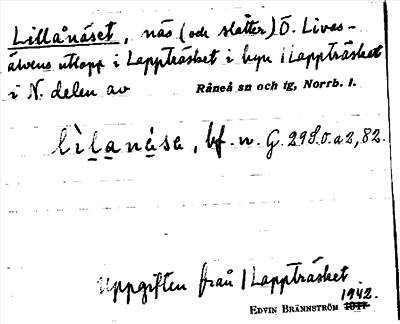 Lillånäset, näs (och slåtter) Ö. Lives-
älvens utlopp i Lappträsket i byn Lappträsket
i N. delen av Råneå sn och tg, Norrb. l.
lìlanása, bf. n. G. 29S.o.a2,82.
Uppgiften från Lappträsket
1942.
EDVIN BRÄNNSTRÖM 1941